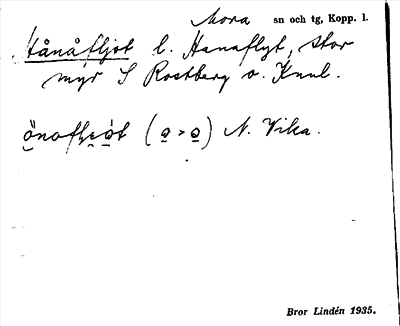 Mora sn och tg, Kopp. l.
tånåfljot l. Hanaflyt, stor
myr S Rostberg o. Knul.
N. Vika.
Bror Lindén 1935.